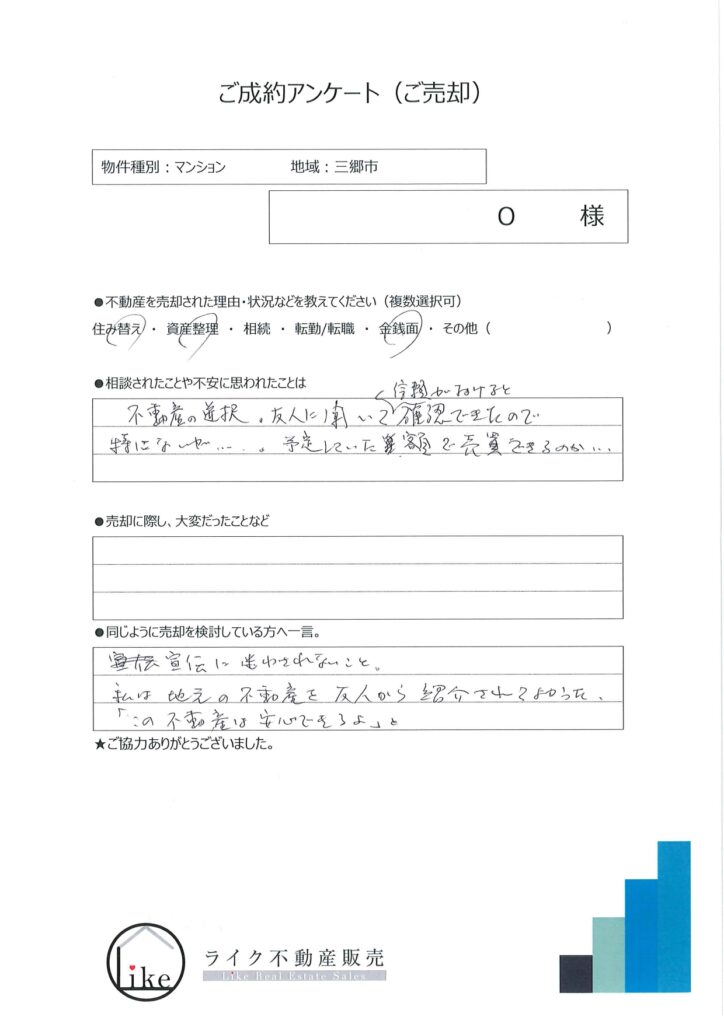 ご成約アンケート（ご売却）
物件種別：マンション 地域：三郷市
O 様
●不動産を売却された理由・状況などを教えてください（複数選択可）
住み替え ・ 資産整理 ・ 相続 ・ 転勤/転職 ・ 金銭面 ・ その他（ ）
●相談されたことや不安に思われたことは
信頼がおけると
不動産の選択。友人に聞いて確認できたので
特にないが……。予定していた金額で売買できるのか…
●売却に際し、大変だったことなど
●同じように売却を検討している方へ一言。
宣伝に迷わされないこと。
私は地元の不動産を友人から紹介されてよかった、
「この不動産は安心できるよ」と
★ご協力ありがとうございました。
Like
ライク不動産販売
Like Real Estate Sales